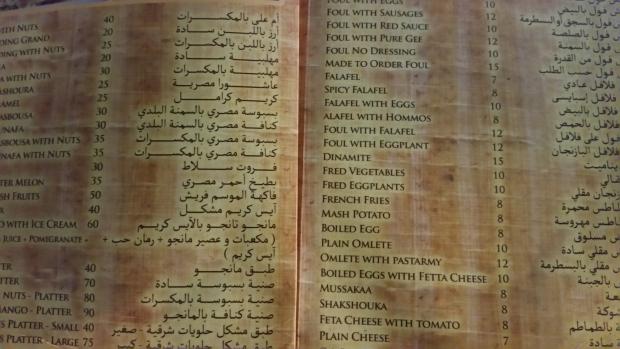 WITH NUTS 40 أم علي بالمكسرات
DING GRAND 20 أرز باللبن سادة
DING WITH NUTS 30 أرز باللبن بالمكسرات
IA 20 مهلبية سادة
A WITH NUTS 30 مهلبية بالمكسرات
ASHOURA 25 عاشورا مصرية
AMEL 25 كريم كرامل
ASBOUSA 30 بسبوسة مصري بالسمنة البلدي
UNAFA 30 كنافة مصري بالسمنة البلدي
ASBOUSA WITH NUTS 35 بسبوسة مصري بالمكسرات
UNAFA WITH NUTS 35 كنافة مصري بالمكسرات
30 فروت سلاط
TER MELON 35 بطيخ أحمر مصري
SH FRUITS 50 فاكهة الموسم فريش
X 40 آيس كريم مشكل
O WITH ICE CREAM 60 مانجو تانجو بالآيس كريم
JUICE + POMIGRANATE + ( مكعبات و عصير مانجو + رمان حب +
آيس كريم )
TTER 40 طبق مانجو
TTER 70 صنية بسبوسة سادة
NUTS - PLATTER 80 صنية بسبوسة بالمكسرات
MANGO - PLATTER 90 صنية كنافة بالمانجو
TS PLATTER - SMALL 40 طبق مشكل حلويات شرقية - صغير
S PLATTER - LARGE 75 طبق مشكل حلويات شرقية - كبير
FOUL WITH EGGS 10 فول بالبيض
FOUL WITH SAUSAGES 12 فول بالسجق أو البسطرمة
FOUL WITH RED SAUCE 10 فول بالصلصة
FOUL WITH PURE GEF 12 فول بالسمنة
FOUL NO DRESSING 10 فول من القدرة
MADE TO ORDER FOUL 15 فول حسب الطلب
FALAFEL 7 فلافل عادي
SPICY FALAFEL 8 فلافل
FALAFEL WITH EGGS 10 فلافل بالبيض
ALAFEL WITH HOMMOS 8 فلافل بالحمص
FOUL WITH FALAFEL 12 فول على فلافل
FOUL WITH EGGPLANT 12 البازنجان
DINAMITE 15
FRED VEGETABLES 10
FRED EGGPLANTS 10 مقلي
FRENCH FRIES 8 محمرة
MASH POTATO 8 مهروسة
BOILED EGG 8 مسلوق
PLAIN OMLETE 8 مقلي سادة
OMLETE WITH PASTARMY 12 مقلي بالبسطرمة
BOILED EGGS WITH FETTA CHEESE 10 بالجبنة
MUSSAKAA 8
SHAKSHOUKA 8
FETA CHEESE WITH TOMATO 8 بالطماطم
PLAIN CHEESE 7 سادة